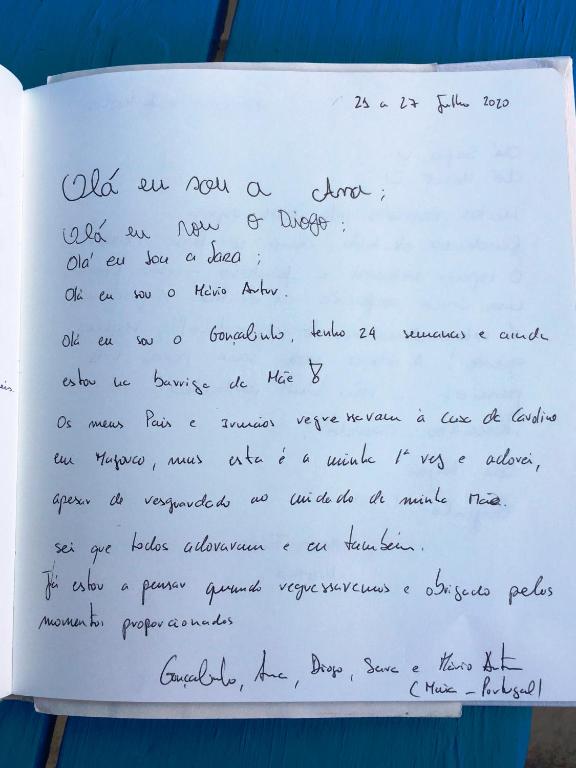 21 a 27 Julho 2020
Olá eu sou a Ana;
Olá eu sou o Diogo;
Olá eu sou a Sara;
Olá eu sou o Mário Artur.
Olá eu sou o Gonçalinho, tenho 24 semanas e ainda
estou na barriga da Mãe
Os meus Pais e Irmãos regressaram à casa da Carolina
em Mazouco, mas esta é a minha 1ª vez e adorei,
apesar de resguardado ao cuidado da minha Mãe.
sei que todos adoraram e eu também.
Já estou a pensar quando regressaremos e obrigado pelos
momentos proporcionados
Gonçalinho, Ana, Diogo, Sara e Mário Artur
(Maia - Portugal)